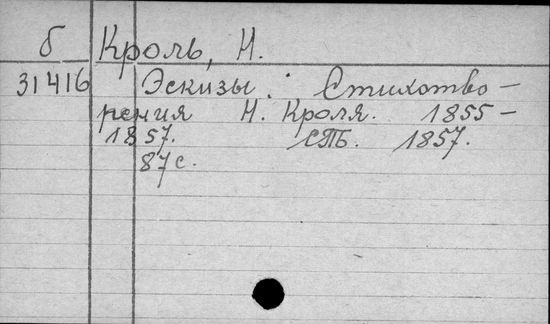 б Кроль, Н.
31416 Эскизы. Стихотво-
рения Н. Кроля. 1855-
1857. СПБ. 1857.
87 с.